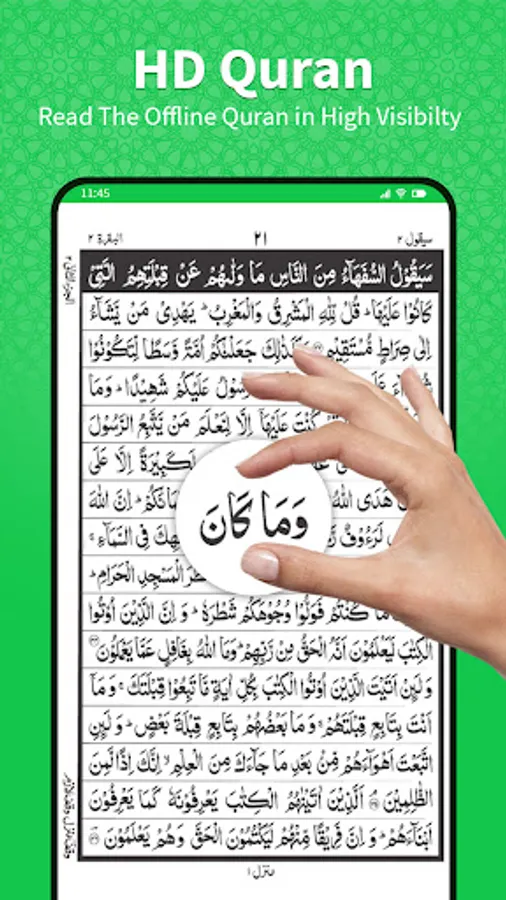 HD Quran
Read The Offline Quran in High Visibilty
11:45
سيقول ٢ ٢١ البقرة ٢
سَيَقُوْلُ السُّفَهَآءُ مِنَ النَّاسِ مَا وَلّٰىهُمْ عَنْ قِبْلَتِهِمُ الَّتِيْ
كَانُوْا عَلَيْهَا ؕ قُلْ لِّلّٰهِ الْمَشْرِقُ وَالْمَغْرِبُ ؕ يَهْدِيْ مَنْ يَّشَآءُ
اِلٰى صِرَاطٍ مُّسْتَقِيْمٍ وَكَذٰلِكَ جَعَلْنٰكُمْ اُمَّةً وَّسَطًا لِّتَكُوْنُوْا
عَلَيْكُمْ شَهِيْدًا ؕ وَمَا
كُنْتَ عَلَيْهَاۤ اِلَّا لِنَعْلَمَ مَنْ يَّتَّبِعُ الرَّسُوْلَ
لَكَبِيْرَةً اِلَّا عَلَى
هَدَى اللّٰهُ اِنَّ اللّٰهَ
لَرَءُوْفٌ فِي السَّمَآءِ
وَمَا كَانَ
الْمَسْجِدِ الْحَرَامِ ؕ
مَا كُنْتُمْ فَوَلُّوْا وُجُوْهَكُمْ شَطْرَهٗ ؕ وَ اِنَّ الَّذِيْنَ اُوْتُوا
الْكِتٰبَ لَيَعْلَمُوْنَ اَنَّهُ الْحَقُّ مِنْ رَّبِّهِمْ ؕ وَمَا اللّٰهُ بِغَافِلٍ عَمَّا يَعْمَلُوْنَ
وَلَئِنْ اَتَيْتَ الَّذِيْنَ اُوْتُوا الْكِتٰبَ بِكُلِّ اٰيَةٍ مَّا تَبِعُوْا قِبْلَتَكَ ۚ وَمَاۤ
اَنْتَ بِتَابِعٍ قِبْلَتَهُمْ ۚ وَمَا بَعْضُهُمْ بِتَابِعٍ قِبْلَةَ بَعْضٍ ؕ وَلَئِنِ
اتَّبَعْتَ اَهْوَآءَهُمْ مِّنْۢ بَعْدِ مَا جَآءَكَ مِنَ الْعِلْمِ ۙ اِنَّكَ اِذًا لَّمِنَ
الظّٰلِمِيْنَ اَلَّذِيْنَ اٰتَيْنٰهُمُ الْكِتٰبَ يَعْرِفُوْنَهٗ كَمَا يَعْرِفُوْنَ
اَبْنَآءَهُمْ ؕ وَ اِنَّ فَرِيْقًا مِّنْهُمْ لَيَكْتُمُوْنَ الْحَقَّ وَهُمْ يَعْلَمُوْنَ
منزل ١